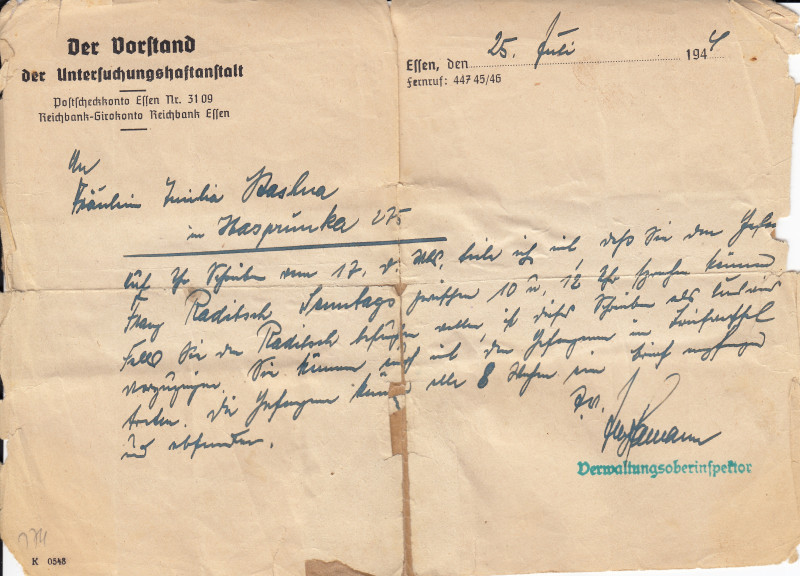 Der Vorstand
der Untersuchungshaftanstalt
Postscheckkonto Essen Nr. 31 09
Reichbank-Girokonto Reichbank Essen
Essen, den 25. Juli 1944
Fernruf: 447 45/46
An
Fräulein Emilia Stashna
in Hasprunka 275
Auf Ihr Schreiben vom 17. d. Mts. teile ich mit, daß Sie den Gefan
Franz Raditsch Sonntags zwischen 10 u. 12 Uhr sprechen können
Falls Sie den Raditsch besuchen wollen, ist dieses Schreiben als Ausweis
vorzuzeigen. Sie können auch mit dem Gefangenen in Briefwechsel
treten. Die Gefangenen können alle 8 Wochen einen Brief empfangen
und absenden.
Verwaltungsoberinspektor
K 0548